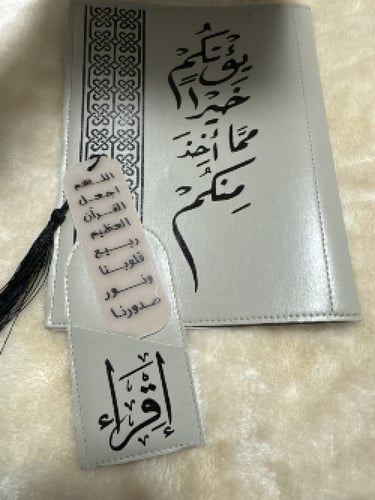 يُؤْتِكُمْ
خَيْرًا
مِّمَّا أُخِذَ
مِنكُمْ
اللهم
اجعل
القرآن
العظيم
ربيع
قلوبنا
ونور
صدورنا
إقرأ